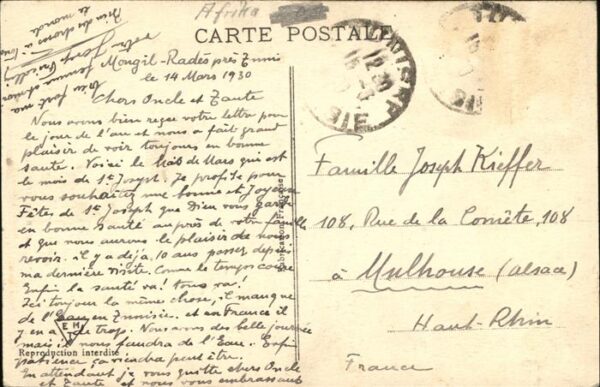 Afrika
CARTE POSTALE
Mongil-Radès près Tunis
le 14 Mars 1930
Chers Oncle et Tante
Nous avons bien reçue votre lettre pour
le jour de l'an et nous a fait grand
plaisir de voir toujours en bonne
santé. Voici le mois de Mars qui est
le mois de St Joseph. Je profite pour
vous souhaitez une bonne et Joyeuse
Fêtes de St Joseph que Dieu vous garde
en bonne santé auprès de votre famille
et que nous aurons le plaisir de nous
revoir. il y a déjà, 10 ans passez depuis
ma dernière visite. Comme le temps
Enfin la santé va! tous va!
Ici toujour la même chose, il manque
de l'Eau en Tunisie. et en France il
y en a de trop. Nous avons des belle journée
mais il nous faudra de l'Eau. Enfin
patience ça viendra peut être.
En attendant je vous quitte chers Oncle
et Tante et nous vous embrassant
bien fort ma
femme et moi
votre Joseph
bien du chose à tous
le monde
Famille Joseph Kieffer
108, Rue de la Comète, 108
à Mulhouse (alsace)
Haut-Rhin
France
EH
Reproduction interdite
Fabrication Française